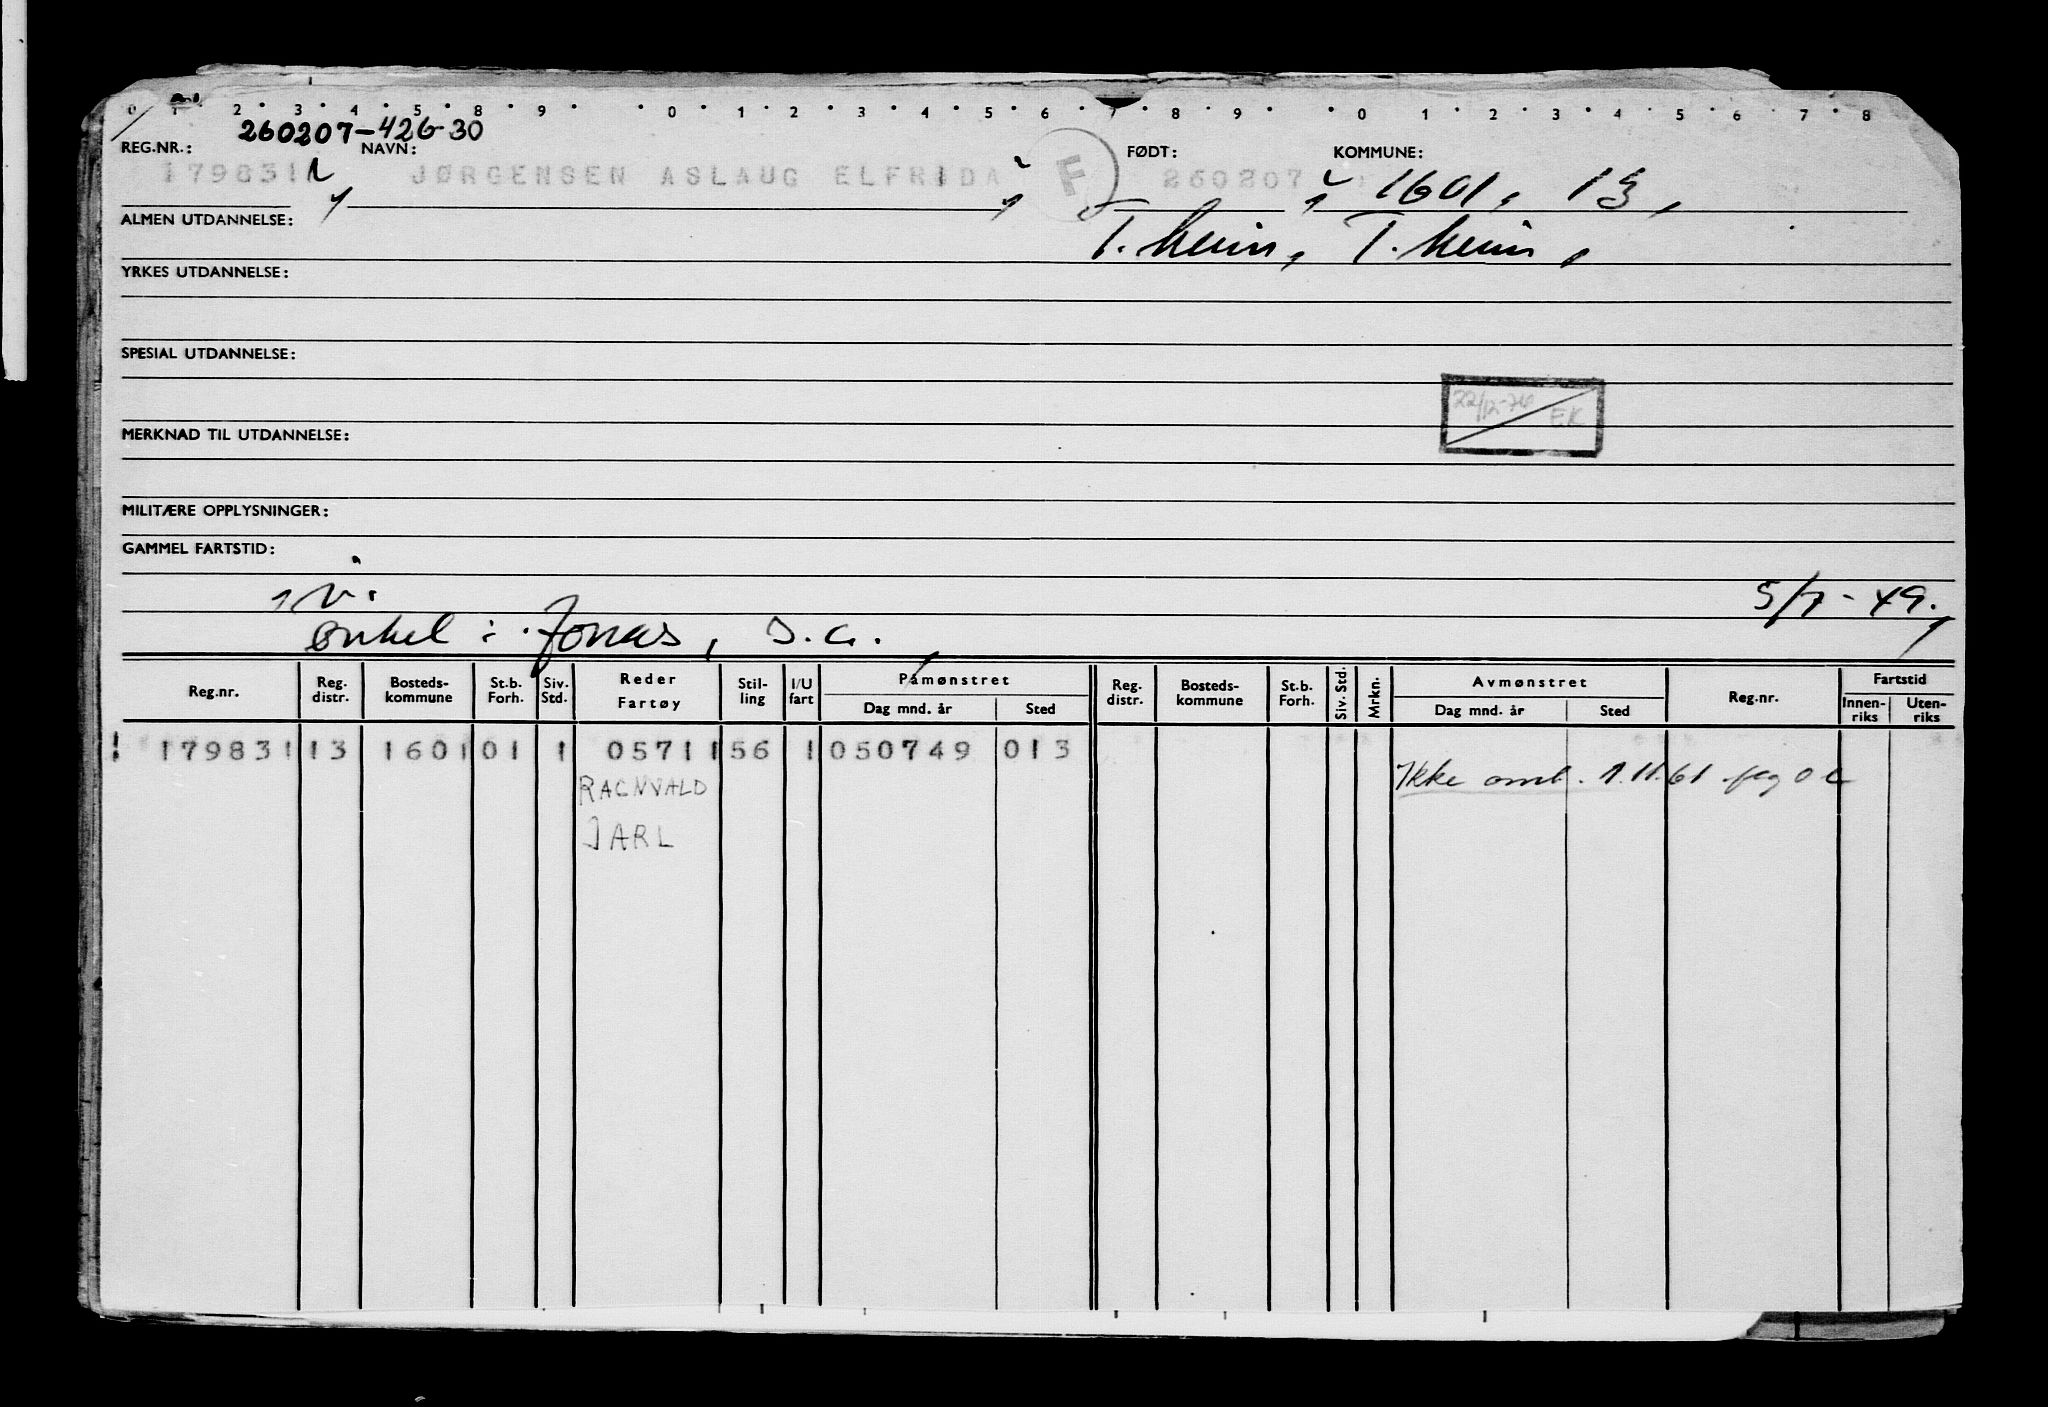 0 1 2 3 4 5 8 9 0 1 2 3 4 5 6 7 8 9 0 1 2 3 4 5 6 7 8
260207-426-30
REG.NR.: NAVN: FØDT: KOMMUNE:
179831 JØRGENSEN ASLAUG ELFRIDA F 260207 1601, 13,
ALMEN UTDANNELSE: T.heim, T.heim,
YRKES UTDANNELSE:
SPESIAL UTDANNELSE:
22/12-76 EK
MERKNAD TIL UTDANNELSE:
MILITÆRE OPPLYSNINGER:
GAMMEL FARTSTID:
5/7-49.
onkel: Jonas, s.a.,
Reg.nr. Reg. distr. Bosteds-kommune St.b. Forh. Siv. Std. Reder Fartøy Stil-ling I/U fart Påmønstret Dag mnd. år Sted Reg. distr. Bosteds-kommune St.b. Forh. Siv. Std. Mrkn. Avmønstret Dag mnd. år Sted Reg.nr. Fartstid Innen-riks Uten-riks
179831 13 1601 01 1 05711 56 1 050749 013
RAGNVALD Ikke omb. 1.11.61
JARL